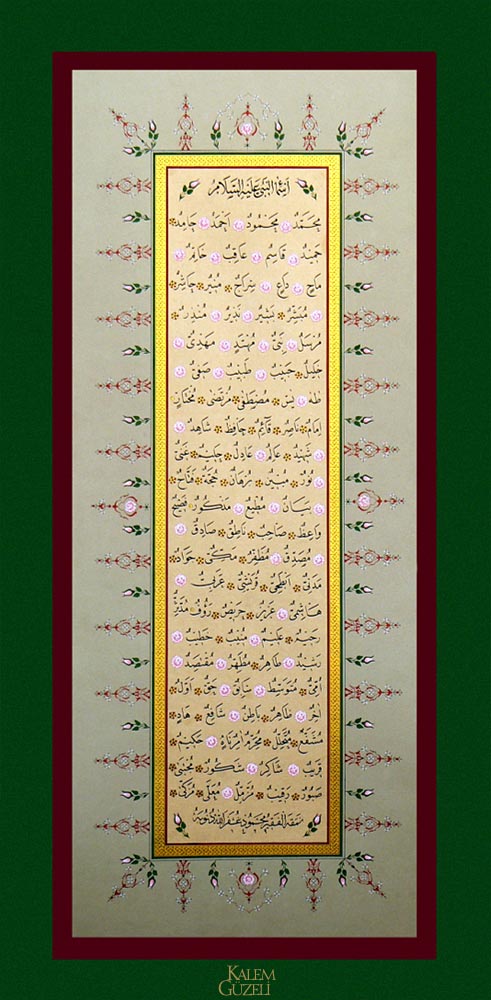 أسماء النبي عليه السلام
محمد محمود أحمد حامد
حميد قاسم عاقب خاتم
ماح داع سراج منير حاشر
مبشر بشير نذير منذر
مرسل نبي مهتد مهدي
خليل حبيب طبيب صفي
طه يس مصطفى مرتضى مختار
امام ناصر قائم حافظ شاهد
شهيد عالم عادل حليم غني
نور مبين برهان حجة فتاح
بيان مطيع مذكور فصيح
واعظ صاحب ناطق صادق
مصدق مظفر مكي جواد
مدني ابطحي قريشي عربي
هاشمي عزيز حريص رؤف
رحيم عليم منيب خطيب
رشيد طاهر مطهر مقتصد
امي متوسط سابق حق اول
آخر ظاهر باطن شافع هاد
مشفع محلل محرم آمر ناه حكيم
قريب شاكر شكور مجتبى
صبور رقيب مزمل معلى مزكى
نمقه الفقير محمود غفر الله ذنوبه
KALEM
GÜZELİ